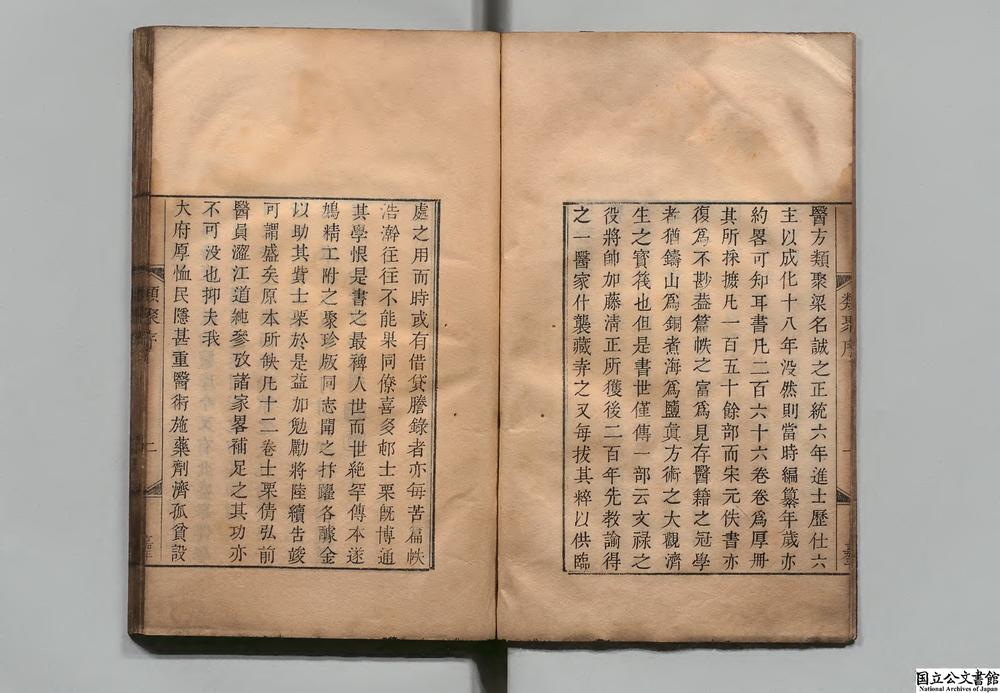 醫方類聚梁名誠之正統六年進士歷仕六
主以成化十八年没然則當時編纂年歲亦
約畧可知耳書凡二百六十六卷卷爲厚冊
其所採摭凡一百五十餘部而宋元佚書亦
復爲不尠蓋篇帙之富爲見存醫籍之冠學
者猶鑄山爲銅煮海爲鹽眞方術之大觀濟
生之寳筏也但是書世僅傳一部云文禄之
役將帥加藤淸正所獲後二百年先教諭得
之一醫家什襲藏弆之又每拔其粹以供臨
類聚序
一
處之用而時或有借貸謄錄者亦每苦篇帙
浩澣往往不能果同僚喜多邨士栗旣博通
其學恨是書之最裨人世而世絶罕傳本遂
鳩精工附之聚珍版同志聞之抃躍各醵金
以助其貲士栗於是益加勉勵將陸續告竣
可謂盛矣原本所缺凡十二卷士栗倩弘前
醫員澀江道純參攷諸家畧補足之其功亦
不可没也抑夫我
大府厚恤民隱甚重醫術施藥劑濟孤貧設
類聚序
二
国立公文書館
National Archives of Japan